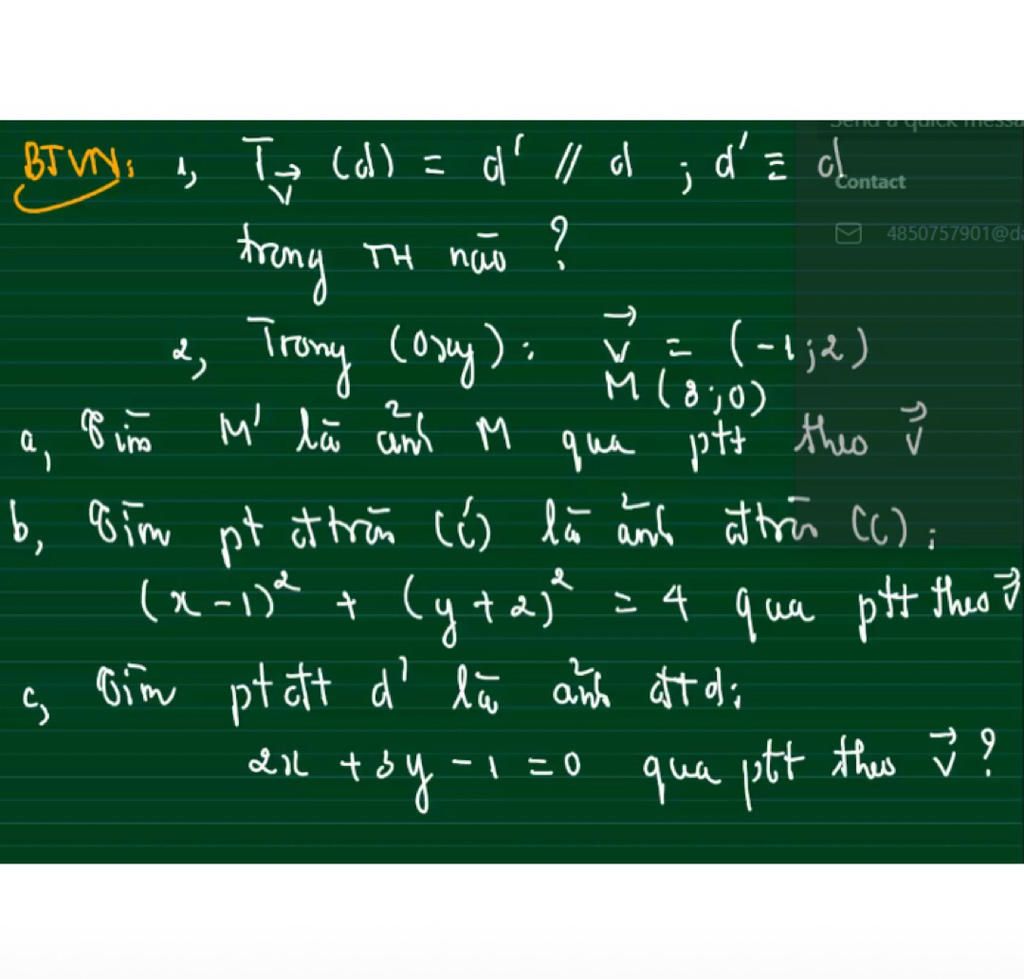 Send a quick messa
BTVN: 1, T_v⃗ (d) = d' // d ; d' ≡ d
Contact
4850757901@da
trong TH nào ?
2, Trong (Oxy): v⃗ = (-1;2)
M(3;0)
a, Tìm M' là ảnh M qua ptt theo v⃗
b, Tìm pt đtròn (C') là ảnh đtròn (C):
(x-1)² + (y+2)² = 4 qua ptt theo v⃗
c, Tìm pt đtt d' là ảnh đtt d:
2x + 3y - 1 = 0 qua ptt theo v⃗ ?